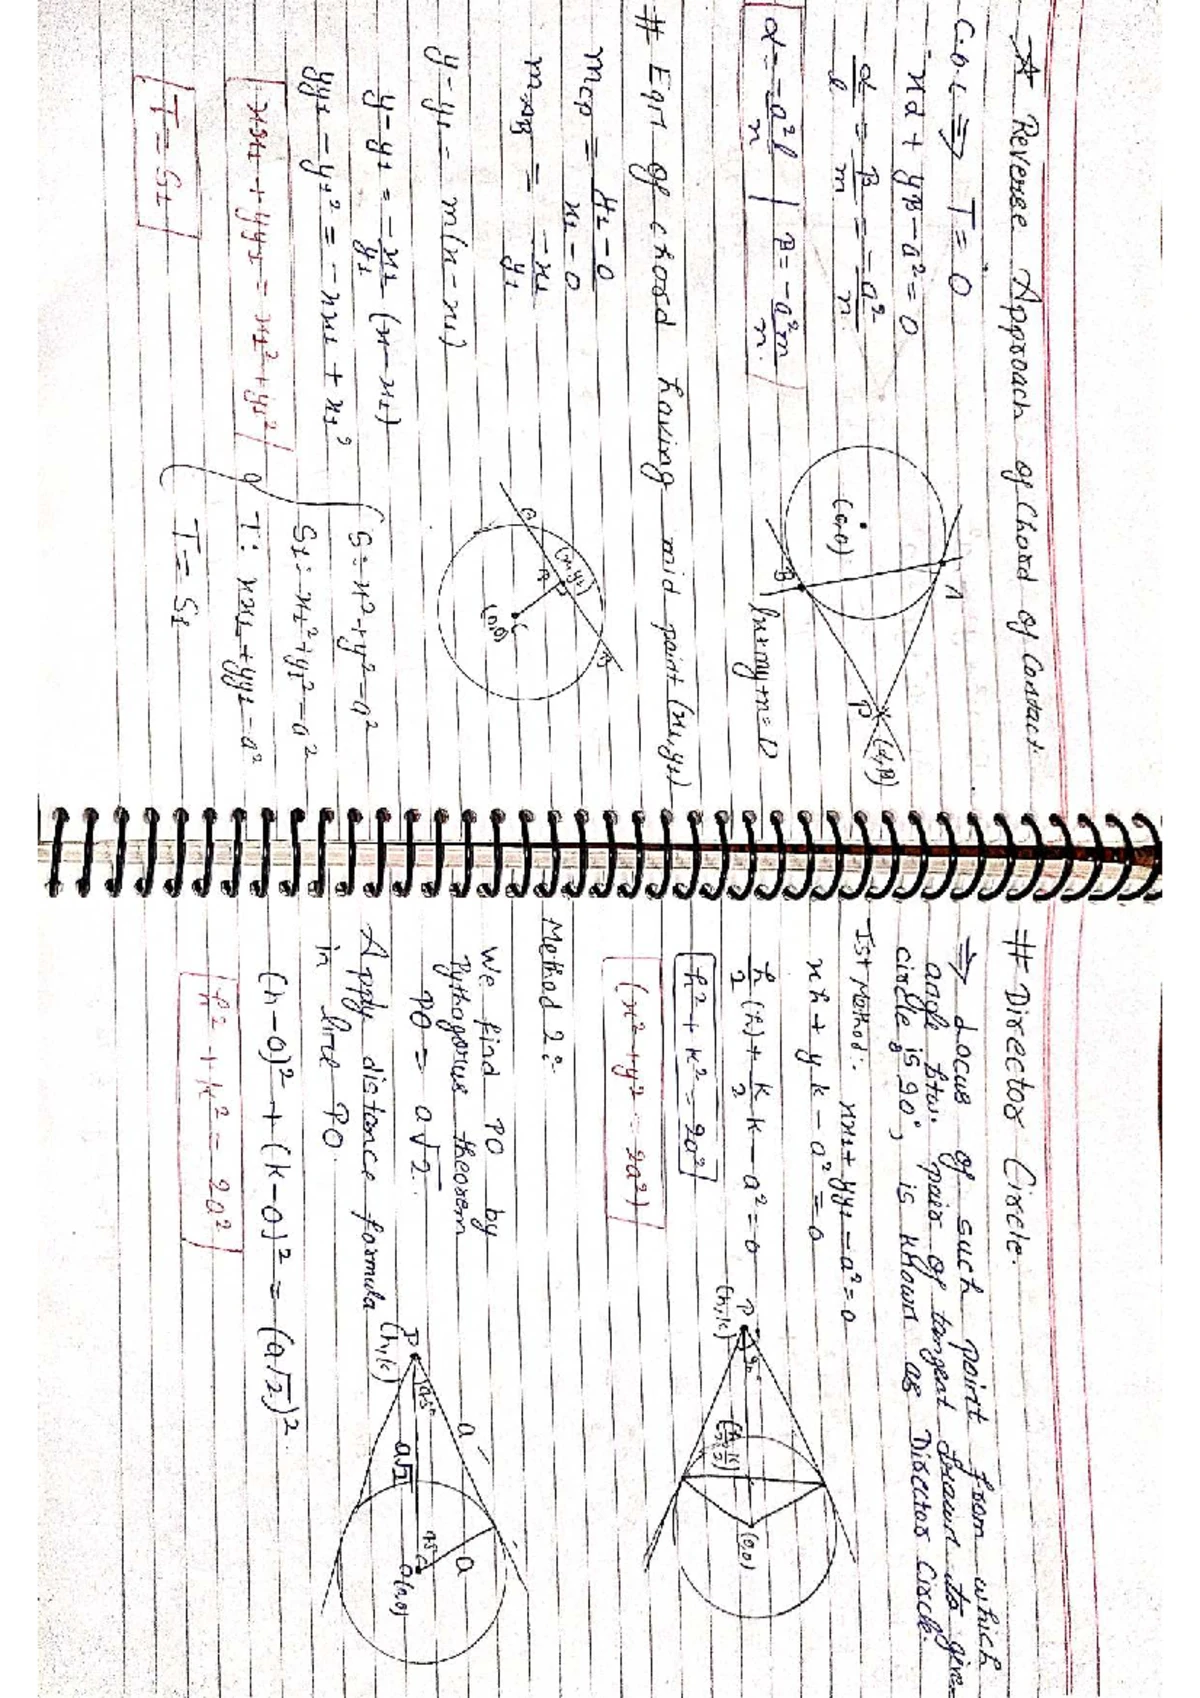 A Reverse Approach of Chord of Contact.
C.O.C ⇒ T = 0
xα + yβ − a² = 0
α/l = β/m = −a²/n
α = −a²l/n | β = −a²m/n.
A
(0,0)
B
P (α,β)
lx+my+n=0
# Eqn of chord having mid point (x₁,y₁)
m_CP = y₁−0/x₁−0
m_AB = −x₁/y₁
y−y₁ = m(x−x₁)
y−y₁ = −x₁/y₁ (x−x₁)
yy₁ − y₁² = −xx₁ + x₁²
xx₁ + yy₁ = x₁² + y₁²
T = S₁
(x₁y₁)
C
(0,0)
B
S: x²+y²=a²
S₁: x₁²+y₁²−a²
T: xx₁+yy₁−a²
T = S₁
# Director Circle.
⇒ Locus of such point from which
angle btw. pair of tangent drawn to given
circle is 90°, is known as Director Circle.
Ist Method: xx₁+yy₁−a²=0
xh + yk − a² = 0
h/2(h) + k/2 k − a² = 0
h² + k² = 2a²
(x²+y² = 2a²)
P
(h,k)
90°
(h/2, k/2)
(0,0)
Method 2:
We find PO by
Pythagorus theorem
PO = a√2.
Apply distance formula
in line PO.
(h−0)² + (k−0)² = (a√2)².
h² + k² = 2a²
P
(h,k)
45°
a
a√2
45°
a
O(0,0)